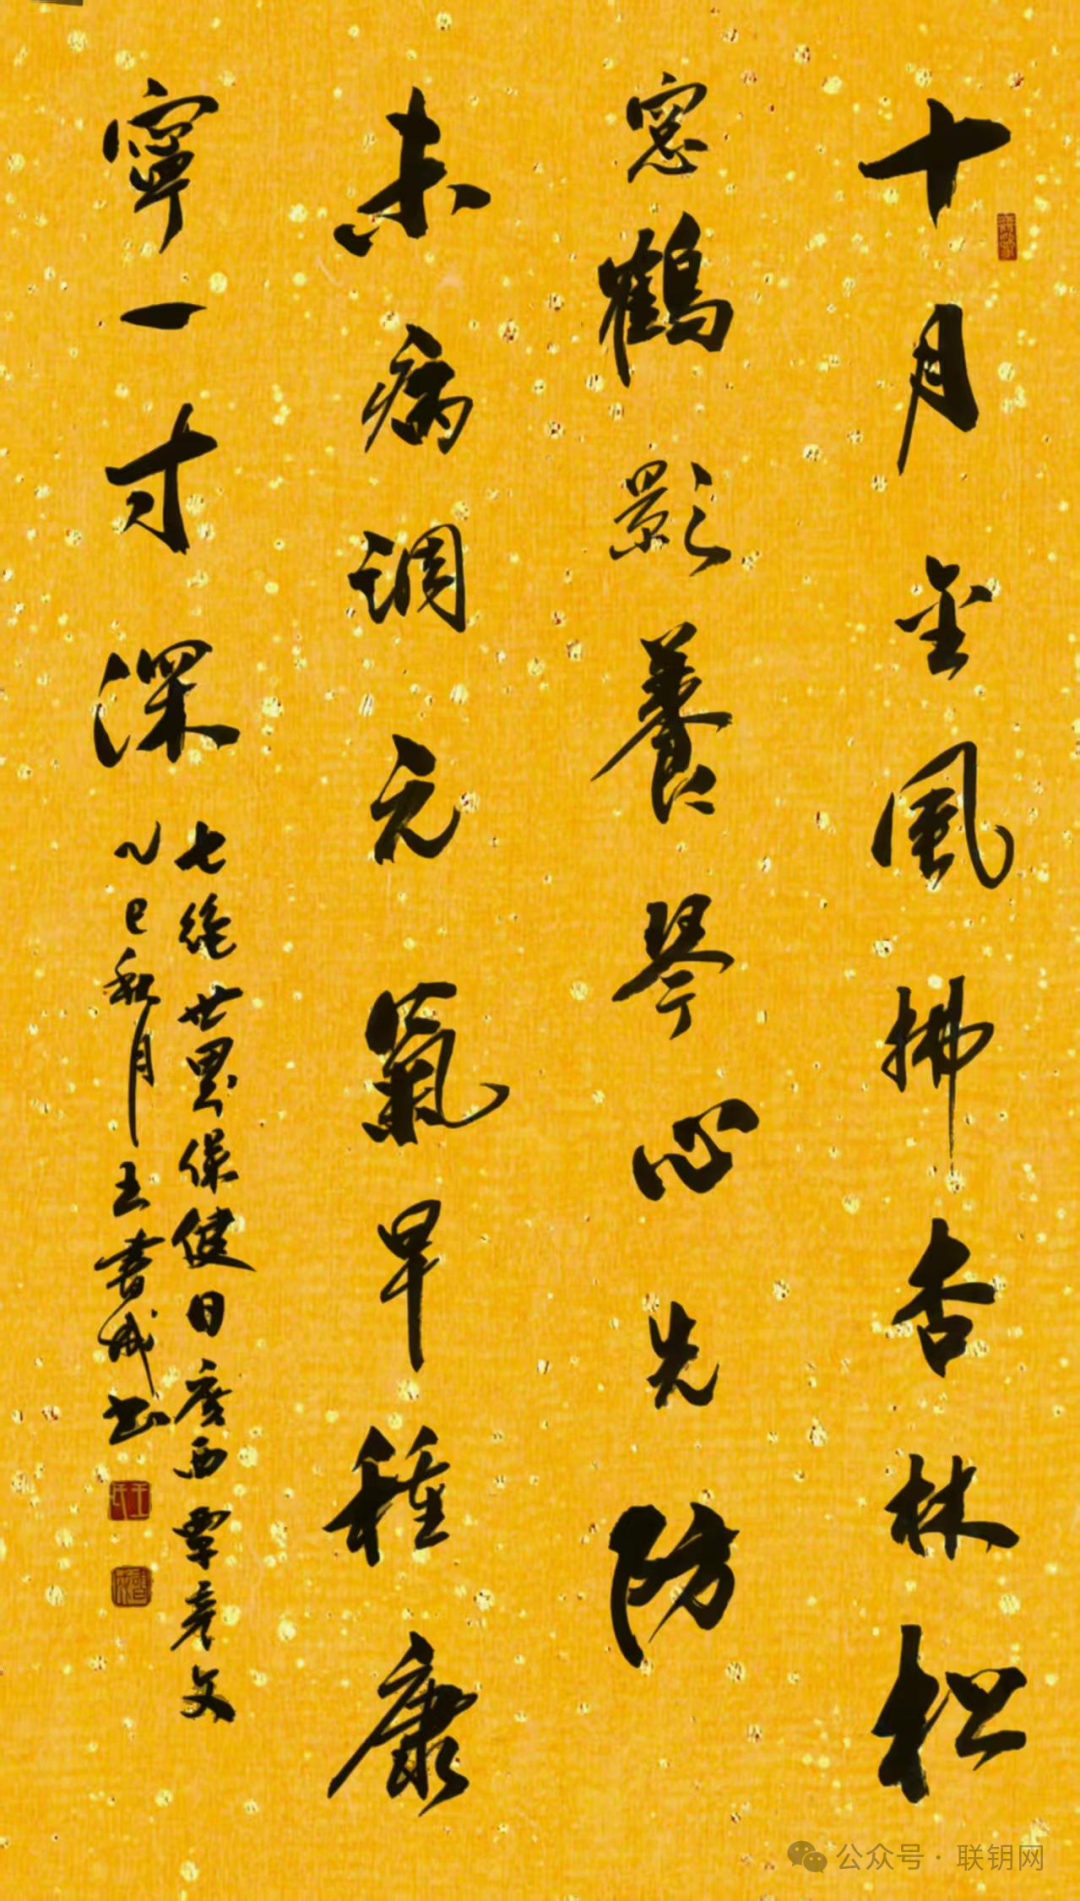 十月金風拂杏林松
窓鶴影養琴心先防
未病調元氣早種康
寧一寸深
七绝世界保健日廣西覃彦文
乙巳秋月王書成书
公众号·联钥网